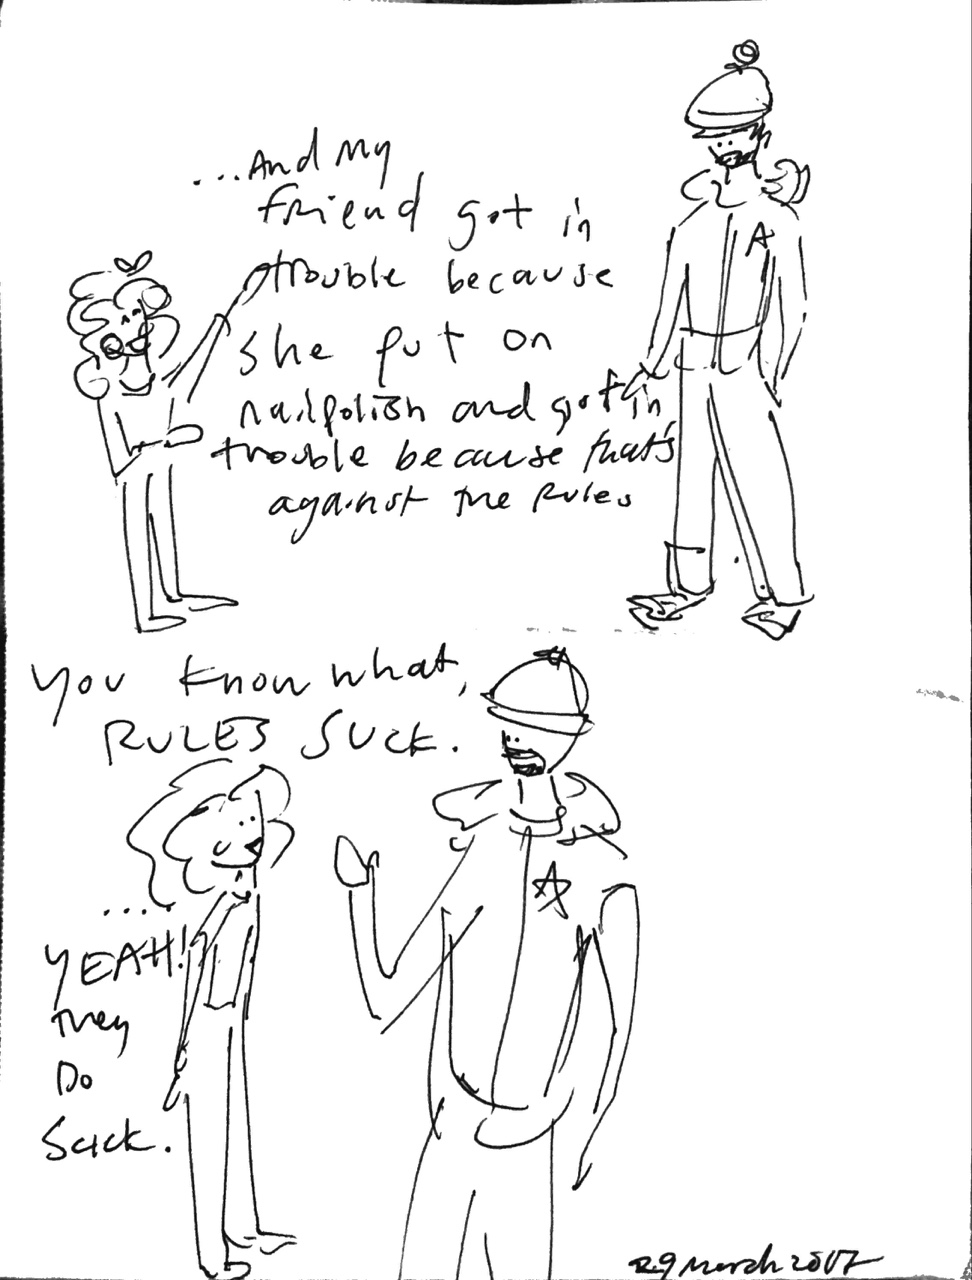 ...And my
friend got in
trouble because
she put on
nailpolish and got in
trouble because that's
against the Rules
A
You know what,
RULES SUCK.
....
YEAH!
they
Do
Suck.
RG March 2017